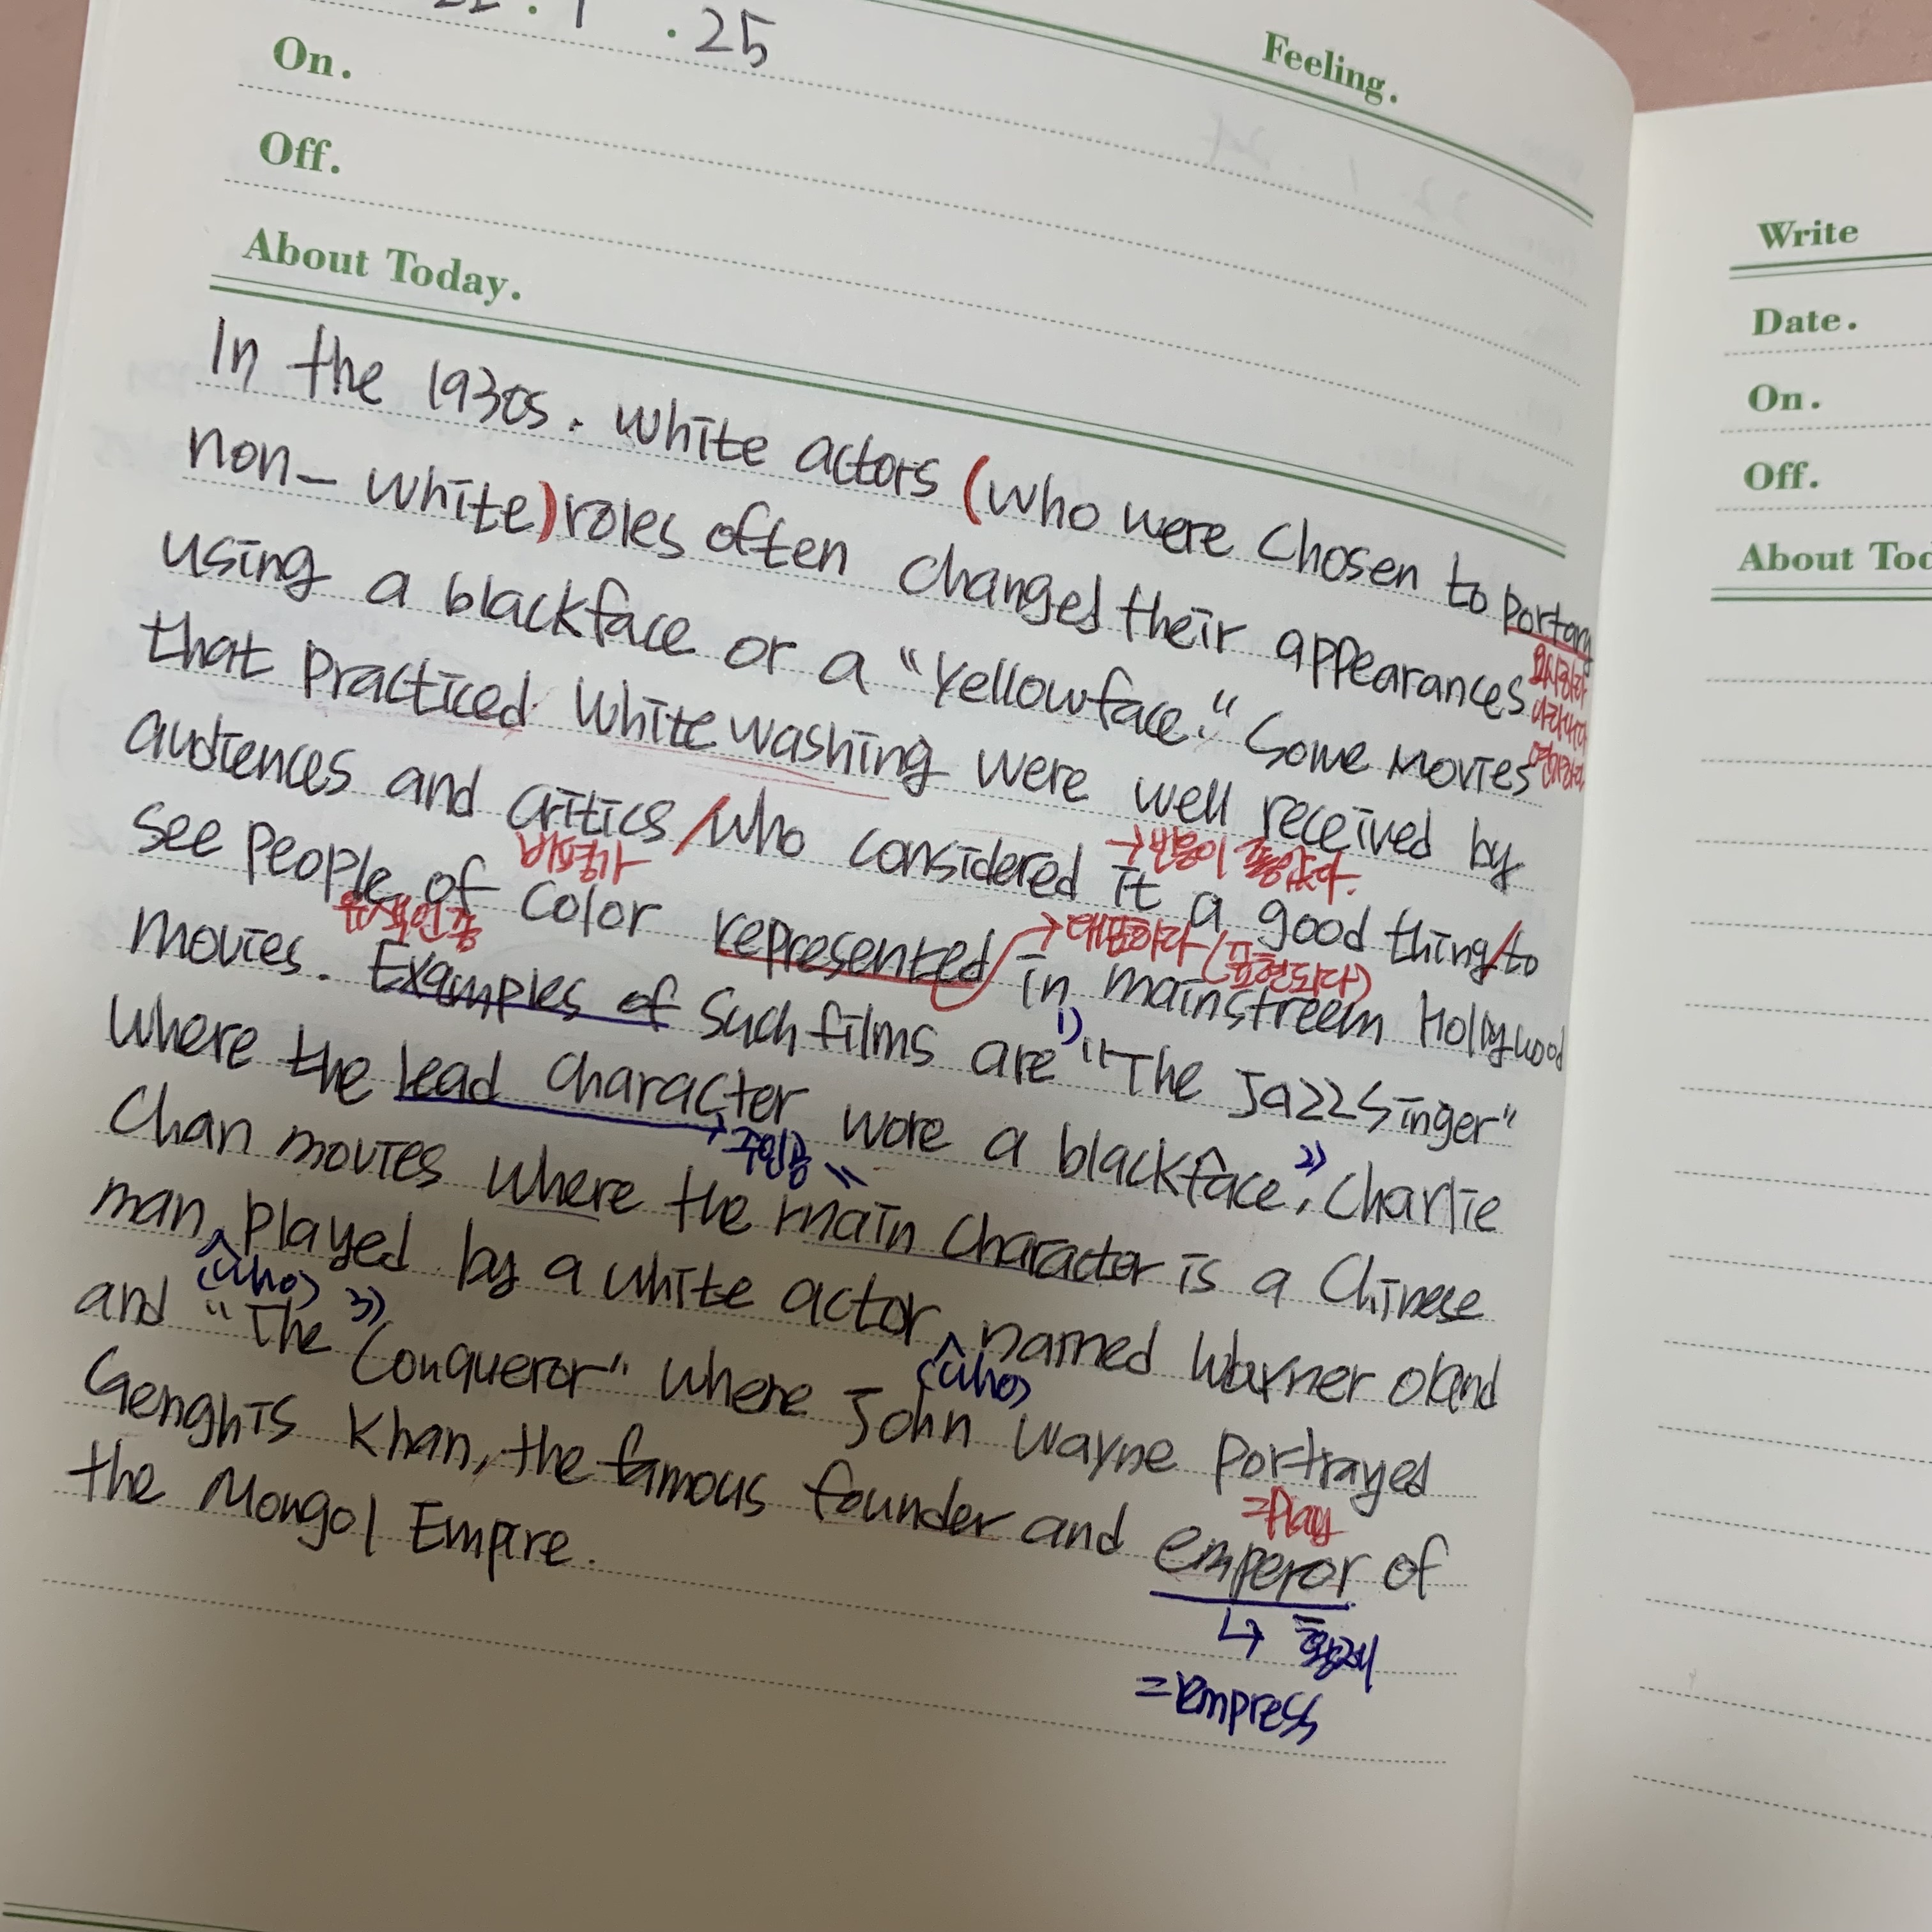 . 1 . 25
Feeling.
On.
Off.
About Today.
In the 1930s. White actors (who were chosen to portary
non- white) roles often changed their appearances
using a blackface or a "Yellowface." Some movies
that practiced White washing were well received by
→반응이 좋았다.
audiences and critics / who considered it a good thing / to
비평가
see people of color represented in mainstreem Hollywood
유색인종
→ 대표하다 (표현되다)
movies. Examples of such films are 1) "The Jazz Singer"
where the lead character wore a blackface, 2) Charlie
→ 주인공 "
Chan movies where the main character is a Chinese
man played by a white actor named Warner oland
(who)
(who)
and 3) "The Conqueror" where John Wayne portrayed
=Play
Genghis Khan, the famous founder and emperor of
↳ 황제
=empress
the Mongol Empire.
Write
Date.
On.
Off.
About Tod